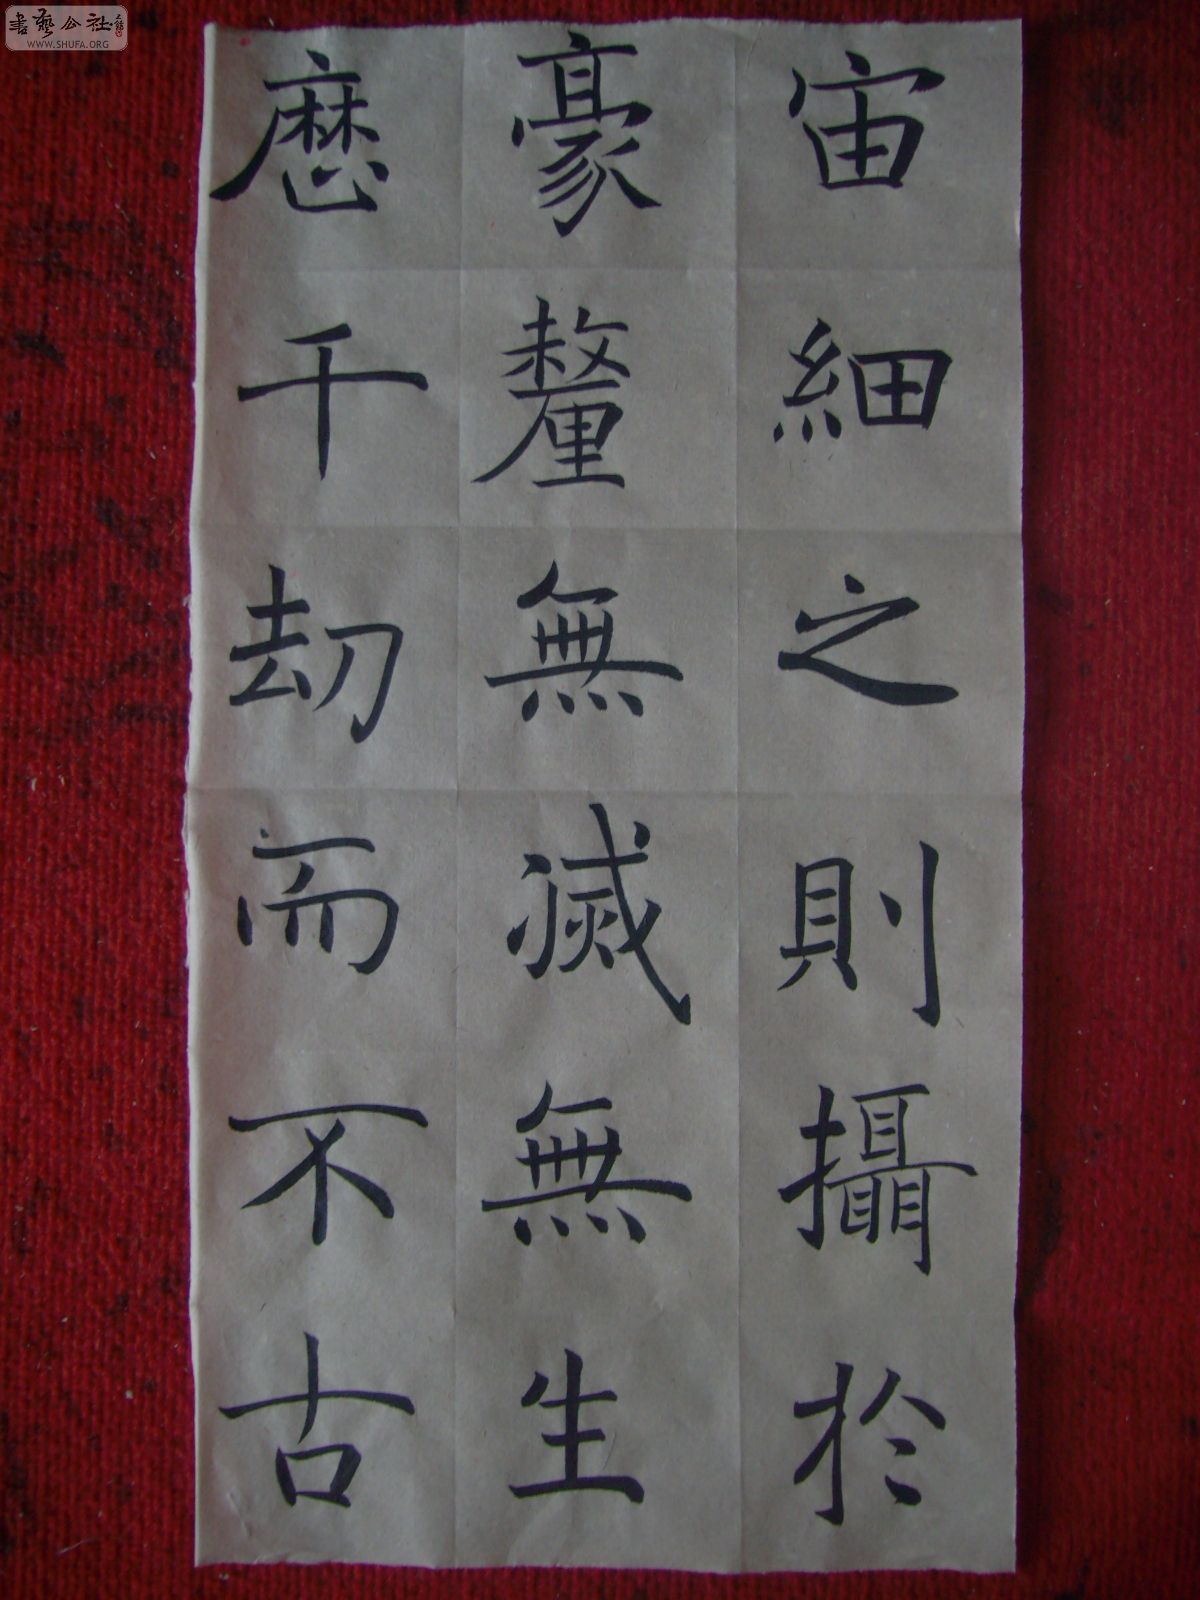 宙細之則攝於
豪釐無滅無生
歷千劫而不古
書藝公社
WWW.SHUFA.ORG